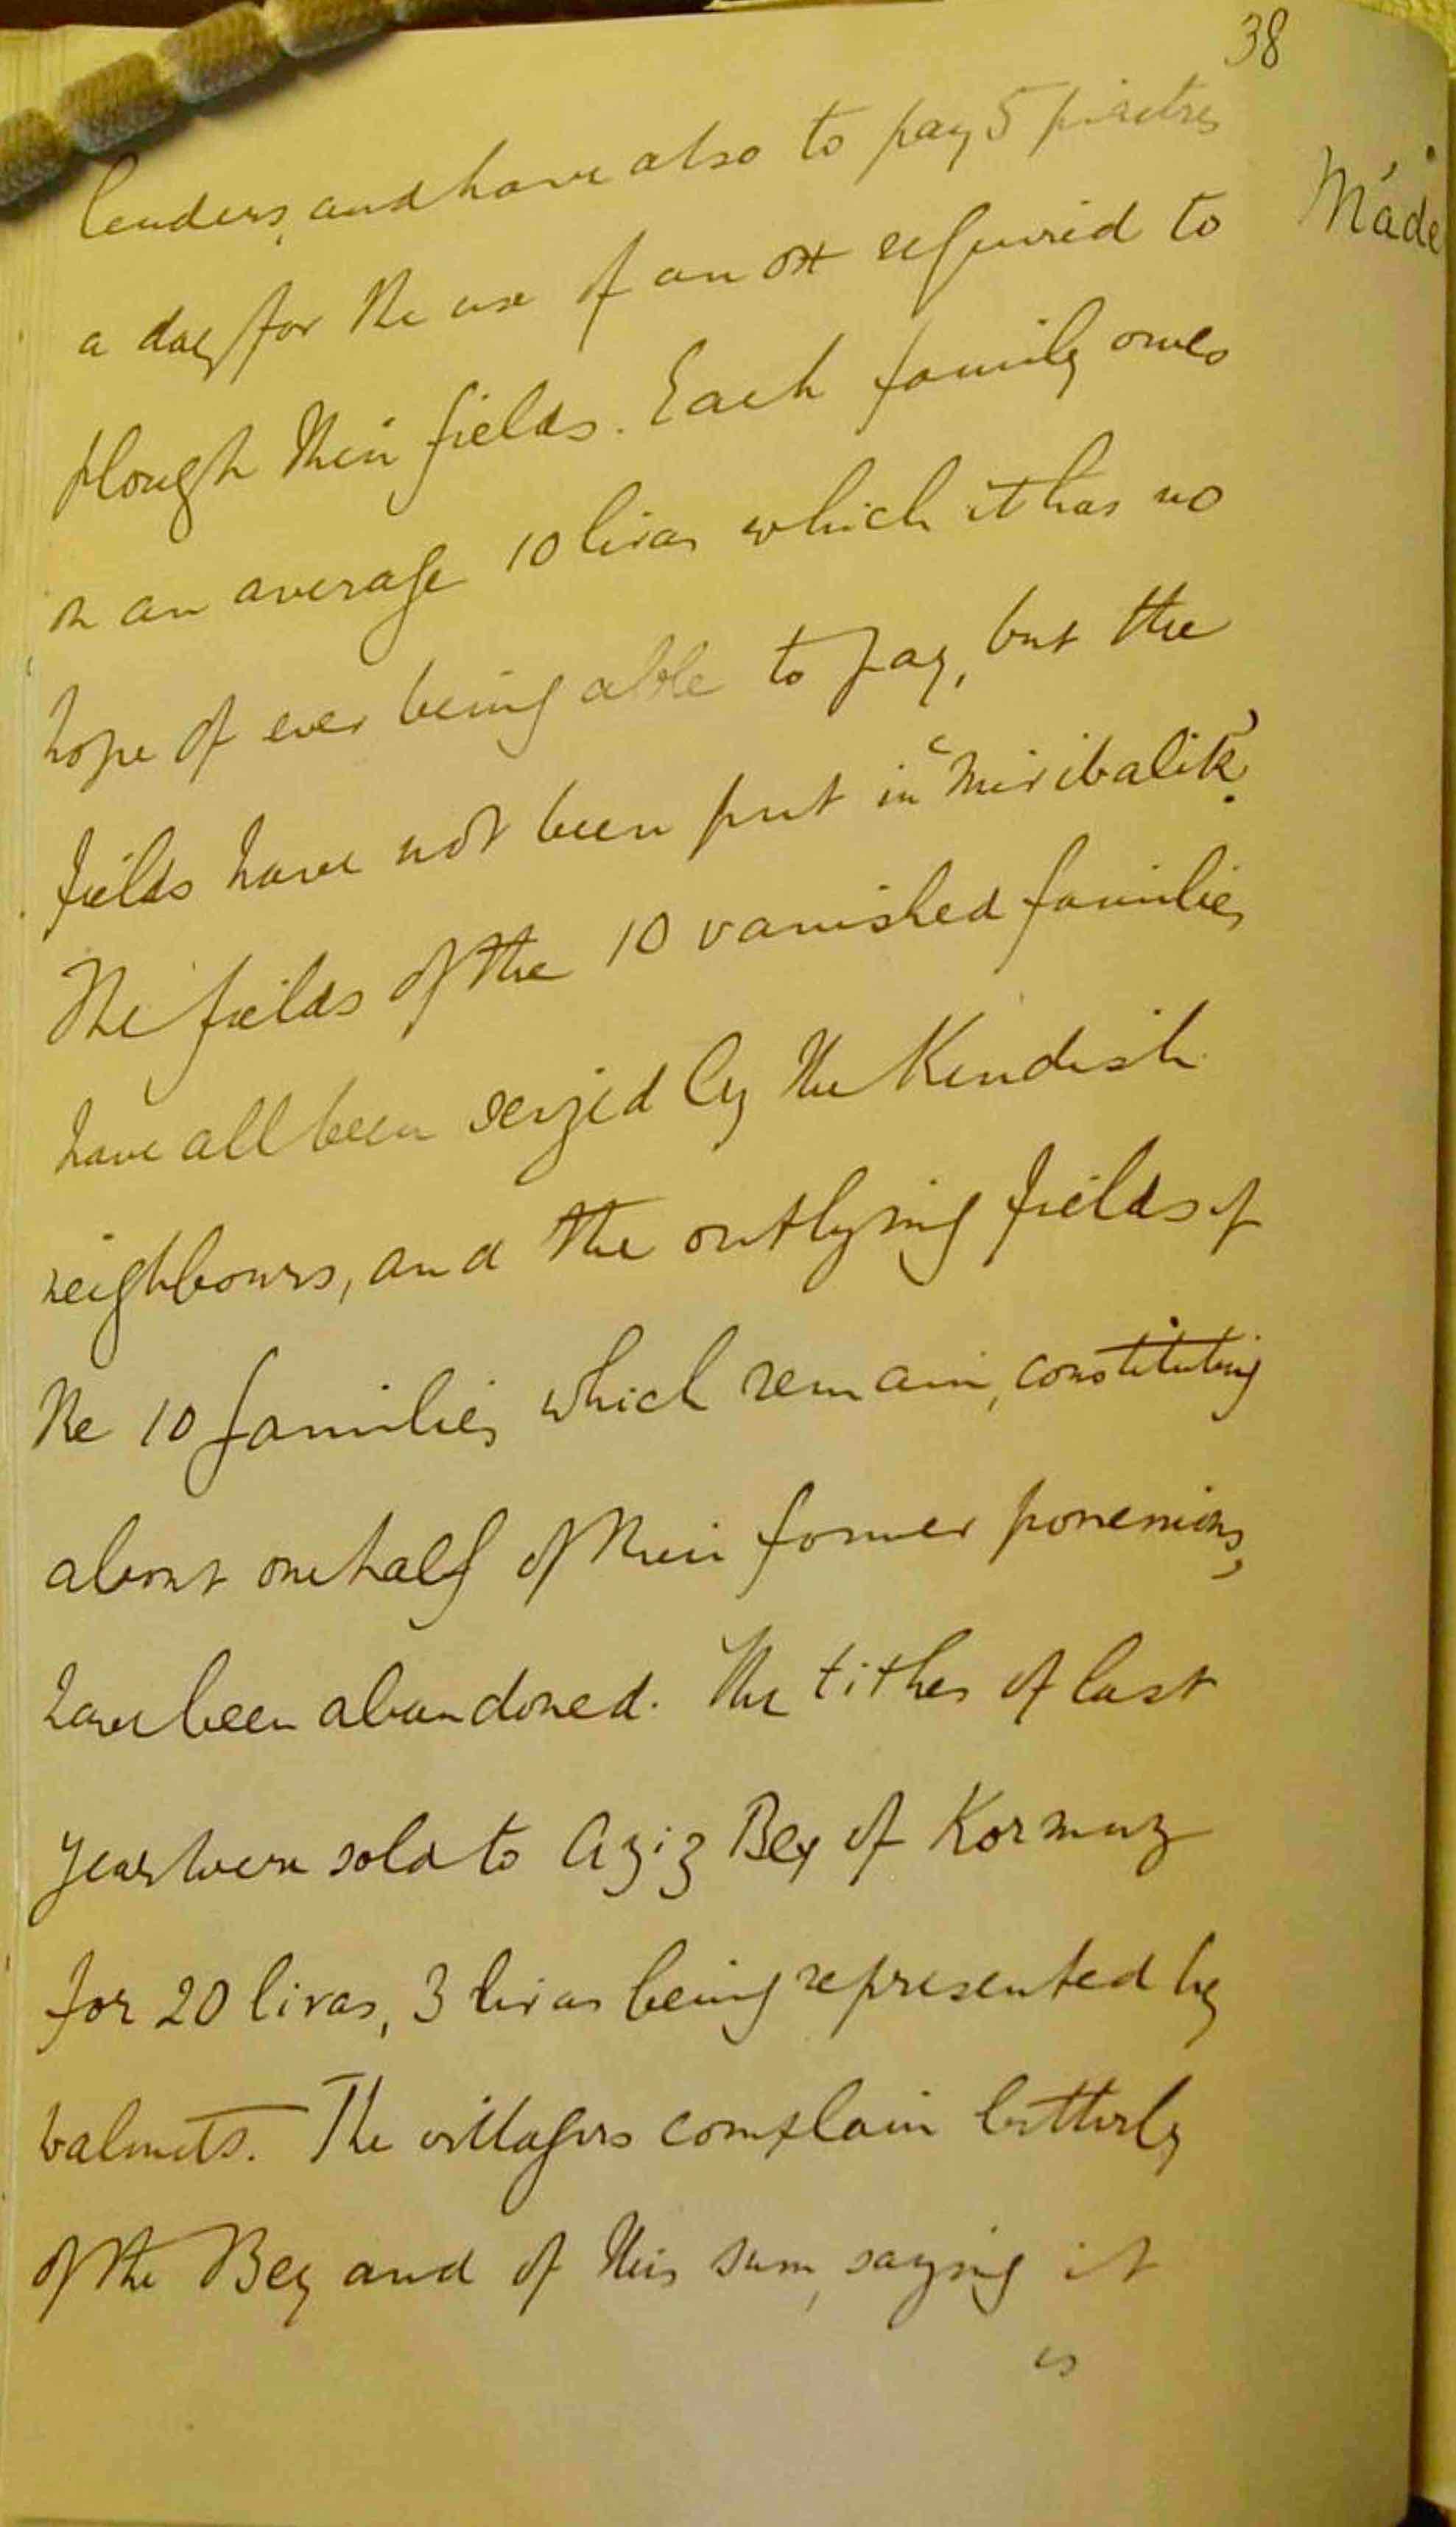 38
lenders, and have also to pay 5 piastres
a day for the use of an ox required to
plough their fields. Each family owes
on an average 10 liras which it has no
hope of ever being able to pay, but the
fields have not been put in "miribalik".
The fields of the 10 vanished families
have all been seized by the Kurdish
neighbours, and the outlying fields of
the 10 families which remain, constituting
about one half of their former possessions,
have been abandoned. The tithes of last
year were sold to Aziz Bey of Kormuz
for 20 liras, 3 liras being represented by
walnuts. The villagers complain bitterly
of the Bey and of this sum, saying it
is
Made